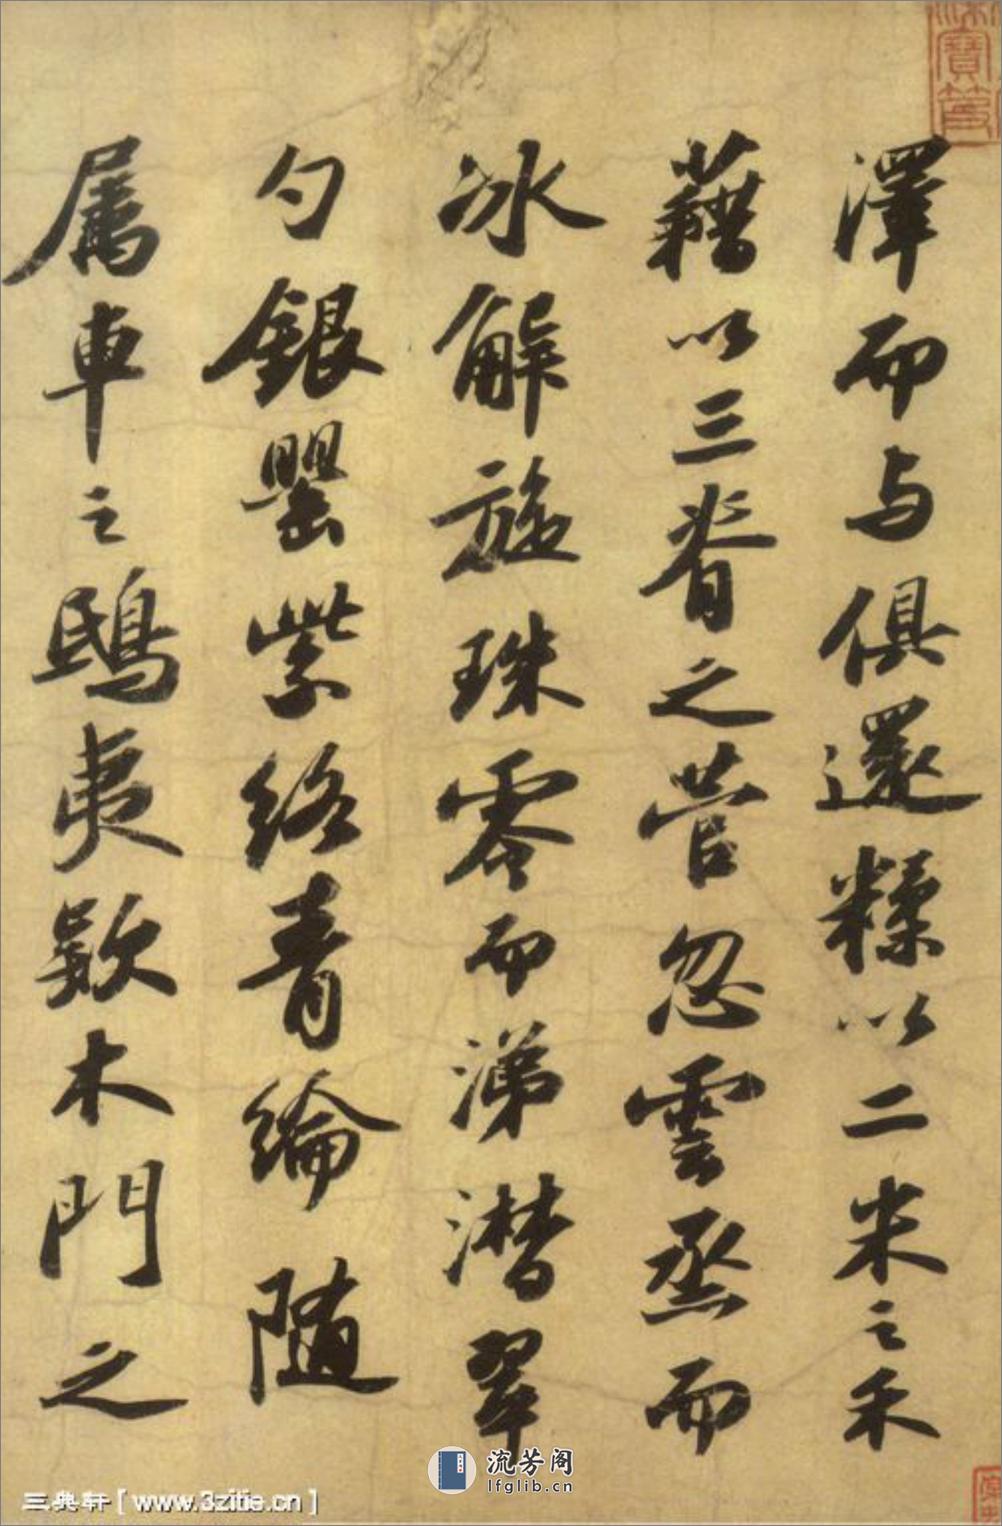 澤而与俱還糅以二米之禾
藉以三脊之菅忽雲烝而
冰解旋珠零而涕潸翠
勺銀罌紫絡青綸隨
属車之鴟夷款木門之
流芳阁
lfglib.cn
三典轩[www.3zitie.cn]